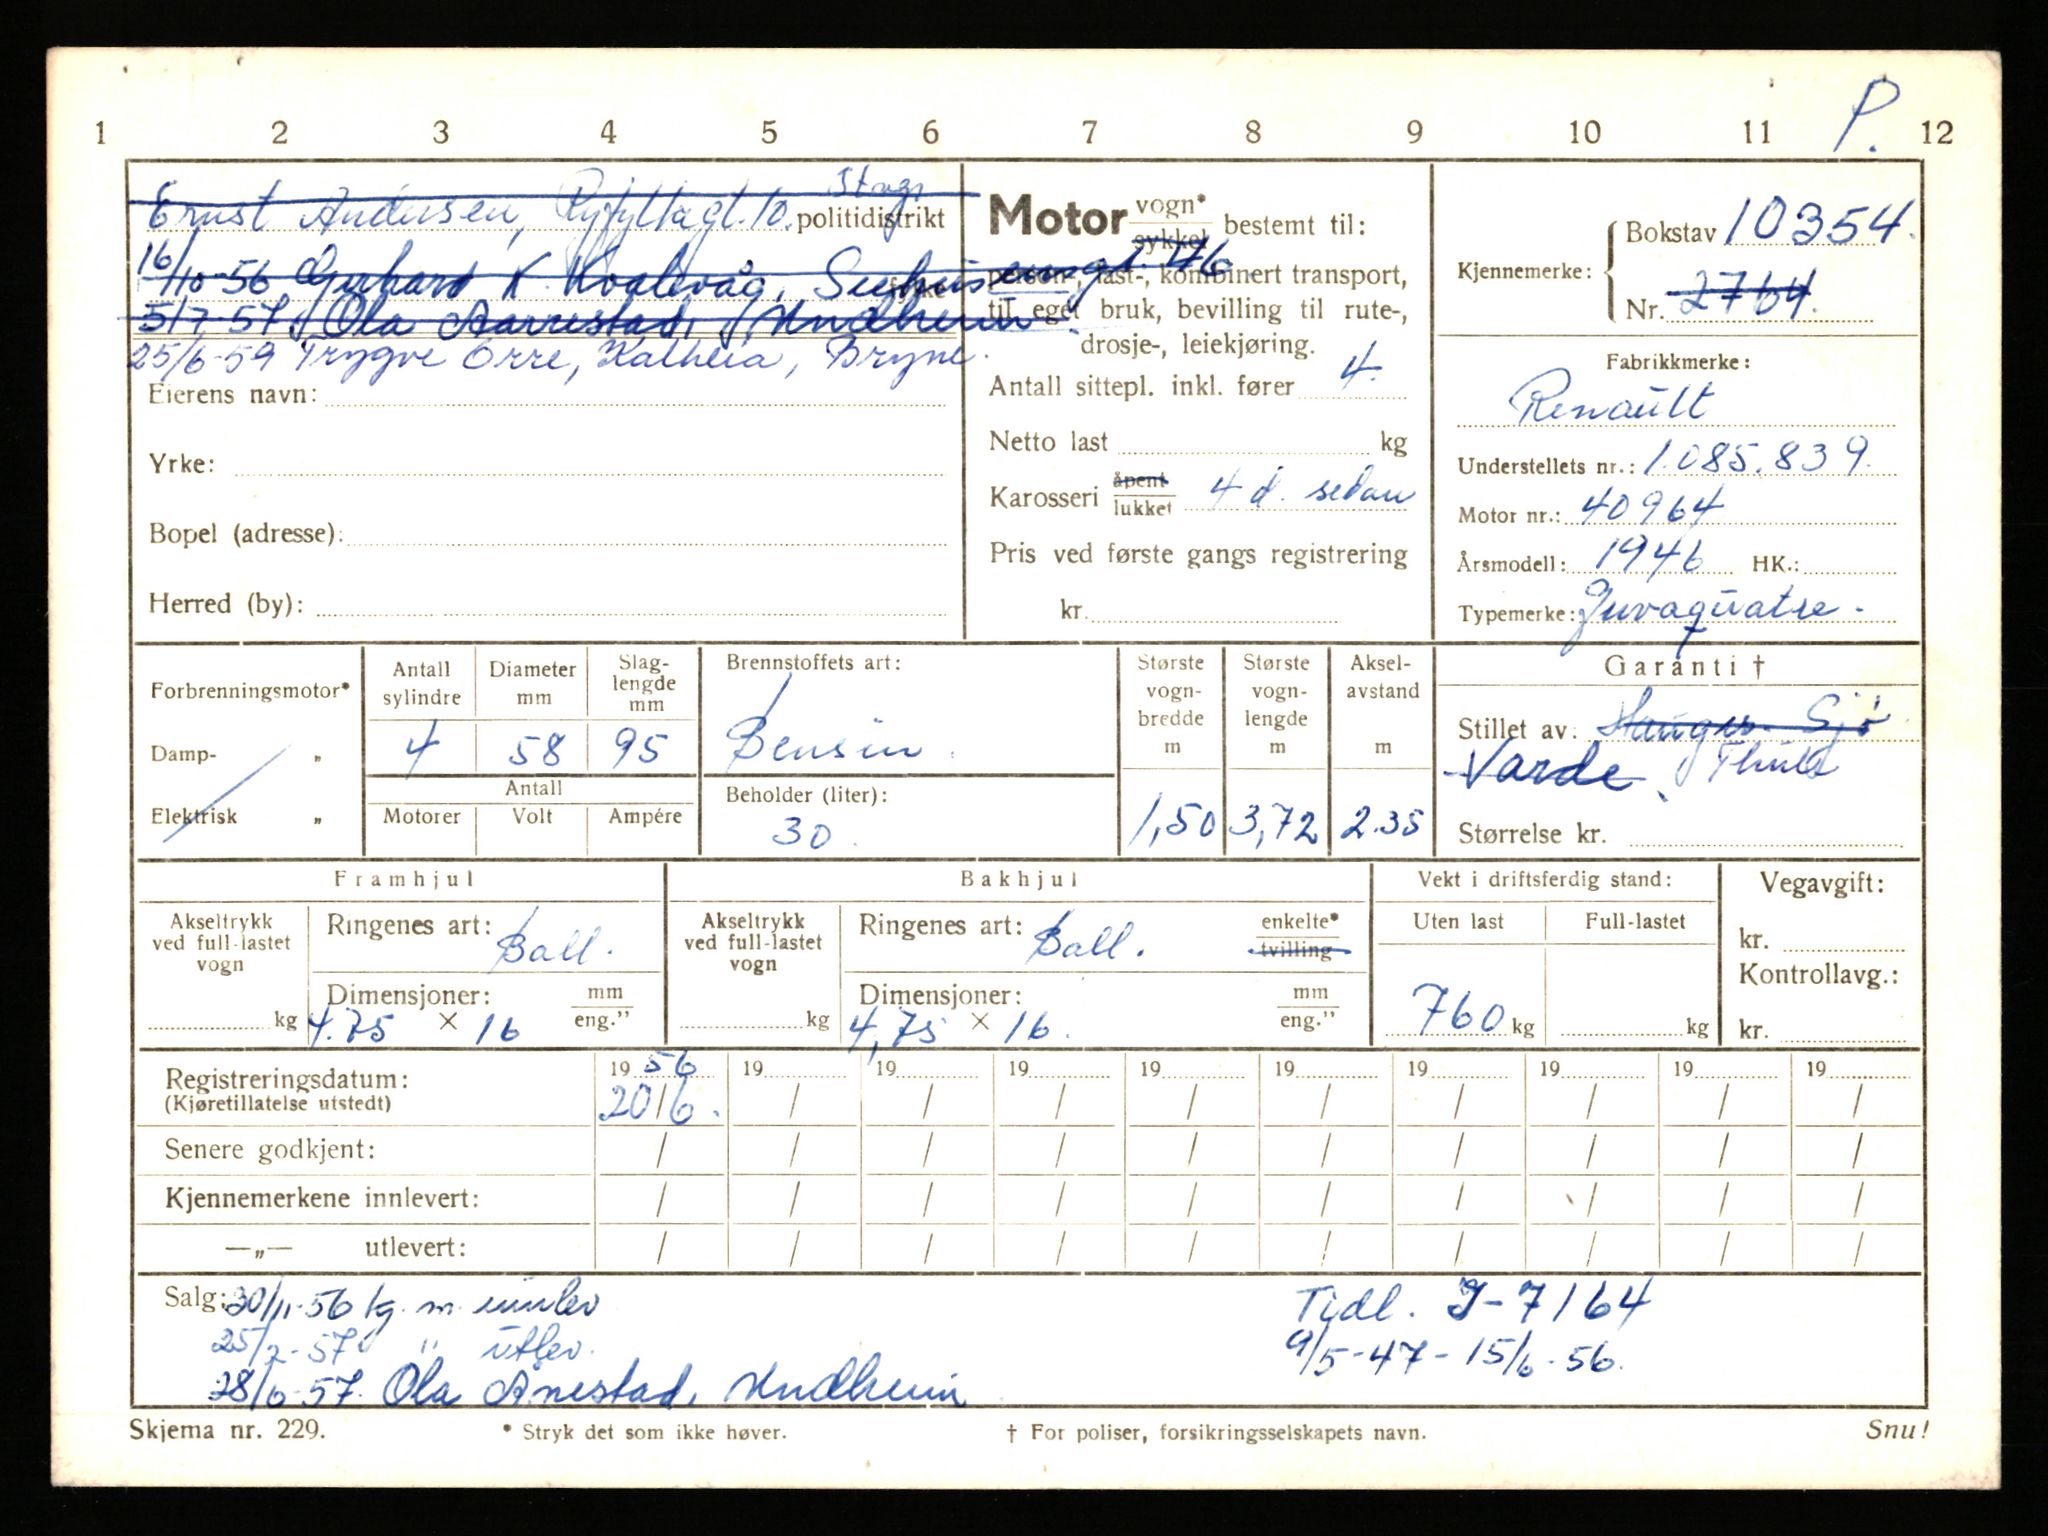 P.
1 2 3 4 5 6 7 8 9 10 11 12
Ernst Andersen, Ryfylkegt. 10. Stvgr politidistrikt
16/10-56 Gerhard K. Kvalevåg, 46. fylke
5/7-57. Ola Aarrestad, Undheim
25/6-59 Trygve Orre, Kalheia, Bryne.
Eierens navn:
Yrke:
Bopel (adresse):
Herred (by):
Motor vogn* sykkel bestemt til:
person-, last-, kombinert transport,
til eget bruk, bevilling til rute-,
drosje-, leiekjøring.
Antall sittepl. inkl. fører 4.
Netto last kg
Karosseri åpent lukket 4 d. sedan
Pris ved første gangs registrering
kr.
Kjennemerke: Bokstav 10354.
Nr. 2764.
Fabrikkmerke:
Renault
Understellets nr.: 1.085.839.
Motor nr.: 40964
Årsmodell: 1946 HK.:
Typemerke: Juvaquatre.
Forbrenningsmotor*
Damp- „
Elektrisk „
Antall sylindre Diameter mm Slag-lengde mm
4 58 95
Antall
Motorer Volt Ampére
Brennstoffets art:
Bensin
Beholder (liter):
30
Største vogn-bredde m Største vogn-lengde m Aksel-avstand m
1,50 3,72 2.35
Garanti †
Stillet av: Hauger Sjø
Varde.
Størrelse kr.
Framhjul
Akseltrykk ved full-lastet vogn kg
Ringenes art: Ball.
Dimensjoner: mm eng."
4.75 × 16
Bakhjul
Akseltrykk ved full-lastet vogn kg
Ringenes art: Ball. enkelte* tvilling
Dimensjoner: mm eng."
4,75 × 16.
Vekt i driftsferdig stand:
Uten last Full-lastet
760 kg kg
Vegavgift:
kr.
Kontrollavg.:
kr.
Registreringsdatum: 19 56 19 19 19 19 19 19 19 19 19
(Kjøretillatelse utstedt) 20/6. / / / / / / / / /
Senere godkjent: / / / / / / / / / /
Kjennemerkene innlevert: / / / / / / / / / /
—„— utlevert: / / / / / / / / / /
Salg: 30/11-56 kj. m. innlev
25/2-57 " utlev.
28/6-57. Ola Anestad, Undheim
Tidl. J-7164
9/5-47-15/6-56.
Skjema nr. 229.
* Stryk det som ikke høver.
† For poliser, forsikringsselskapets navn.
Snu!